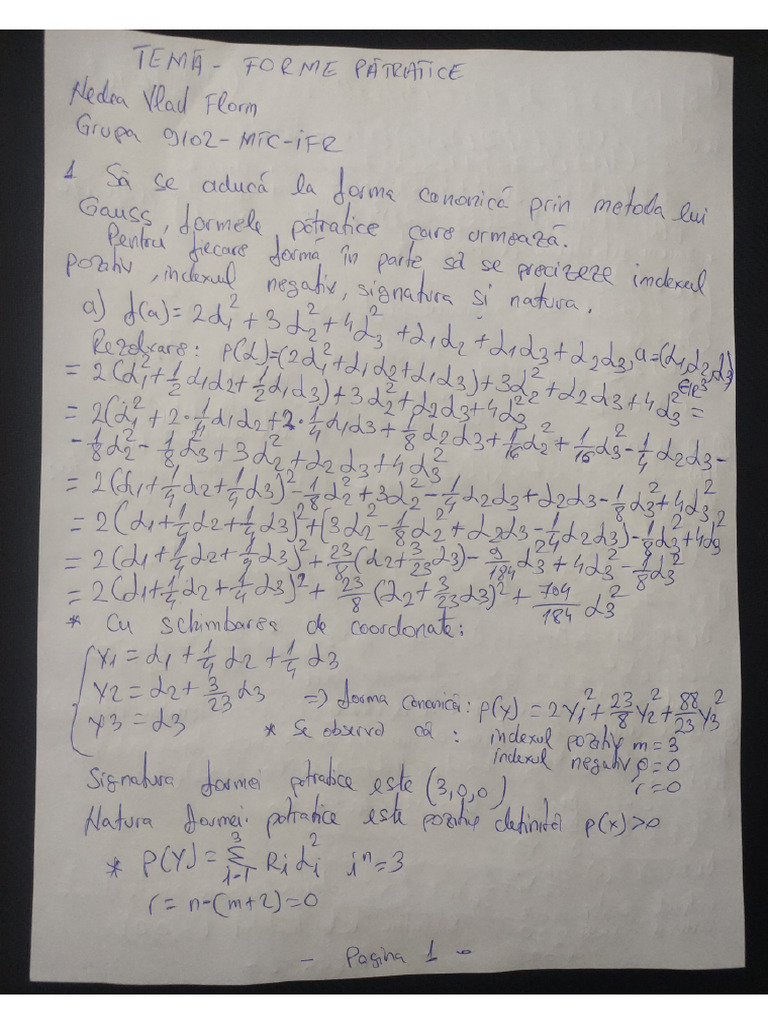 TEMĂ - FORME PĂTRATICE
Nedra Vlad Florin
Grupa 9102-MTC-IFR
1 Să se aducă la forma canonică prin metoda lui
Gauss, formele pătratice care urmează.
Pentru fiecare formă în parte să se precizeze indexul
pozitiv, indexul negativ, signatura și natura.
a) f(a) = 2α₁² + 3α₂² + 4α₃² + α₁α₂ + α₁α₃ + α₂α₃, a = (α₁,α₂,α₃) ∈ℝ³
Rezolvare: p(α) = (2α₁² + α₁α₂ + α₁α₃) + 3α₂² + α₂α₃ + 4α₃² =
= 2(α₁² + 1/2 α₁α₂ + 1/2 α₁α₃) + 3α₂² + α₂α₃ + 4α₃²
= 2(α₁² + 2·1/4 α₁α₂ + 2·1/4 α₁α₃ + 1/8 α₂α₃ + 1/16 α₂² + 1/16 α₃² - 1/4 α₂α₃ -
- 1/8 α₂² - 1/8 α₃² + 3α₂² + α₂α₃ + 4α₃²
= 2(α₁ + 1/4 α₂ + 1/4 α₃)² - 1/8 α₂² + 3α₂² - 1/4 α₂α₃ + α₂α₃ - 1/8 α₃² + 4α₃²
= 2(α₁ + 1/4 α₂ + 1/4 α₃)² + (3α₂² - 1/8 α₂² + α₂α₃ - 1/4 α₂α₃) - 1/8 α₃² + 4α₃²
= 2(α₁ + 1/4 α₂ + 1/4 α₃)² + 23/8 (α₂ + 3/23 α₃)² - 9/184 α₃ + 4α₃² - 1/8 α₃²
= 2(α₁ + 1/4 α₂ + 1/4 α₃)² + 23/8 (α₂ + 3/23 α₃)² + 704/184 α₃²
* Cu schimbarea de coordonate:
y1 = α1 + 1/4 α2 + 1/4 α3
y2 = α2 + 3/23 α3 => forma canonică: p(y) = 2y₁² + 23/8 y₂² + 88/23 y₃²
y3 = α3 * Se observă că: indexul pozitiv m = 3
indexul negativ p = 0
r = 0
Signatura formei pătratice este (3,0,0)
Natura formei pătratice este pozitiv definită p(x) > 0
* p(y) = Σ³ᵢ₌₁ Ri αi² iⁿ = 3
r = n - (m + 2) = 0
- Pagina 1 -